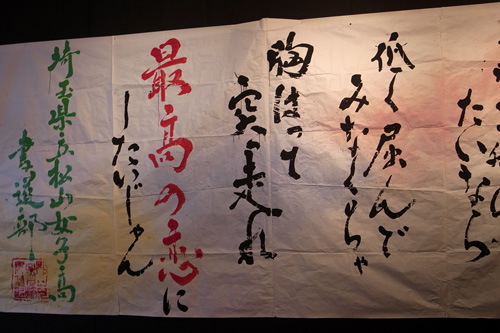 たいなら
低く屈んで
みなくちゃ
胸はって
突っ走れ
最高の恋に
したいじゃん
埼玉県立松山女子高
書道部